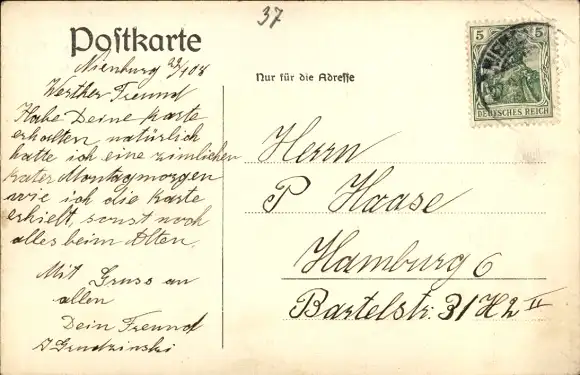 37
Postkarte
Nienburg 29/1 08
Werther Freund
Habe Deine Karte
erhalten natürlich
hatte ich eine zimlichen
kater Montagmorgen
wie ich die Karte
erhielt, sonst noch
alles beim Alten,
Mit Gruss an
allen
Dein Freund
J Grudzinski
Nur für die Adresse
5 5
DEUTSCHES REICH
Herrn
P Haase
Hamburg 6
Bartelstr. 31 H 2 II